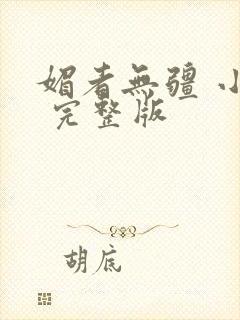 媚者無疆 小
完整版
胡底